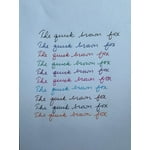 The quick brown fox
The quick brown fox
The quick brown fox
The quick brown fox
The quick brown fox
The quick brown fox
The quick brown fox
The quick brown fox
The quick brown fox
The quick brown fox